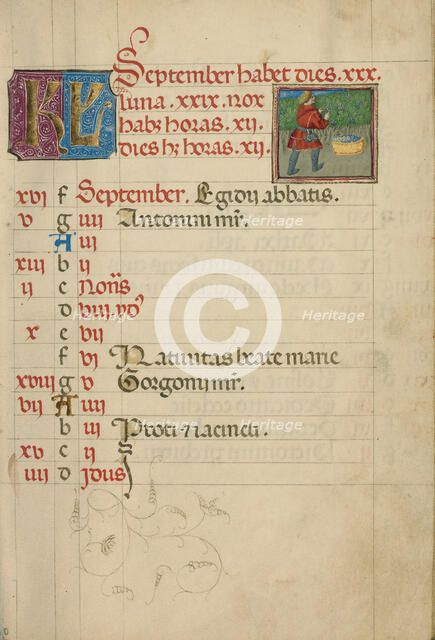 KL September habet dies .xxx.
luna .xxix. nox
hab; horas .xii.
dies h; horas .xii.
xvi f September. Egidii abbatis.
v g iiii Antonini mr̃.
A iii
xiii b ii
ii c Nonis
d viii ydꝰ
x e vii
f vi Nativitas beate marie
xviii g v Gorgonii mr̃.
vii A iiii
b iii Proti ⁊ iacincti.
xv c ii
iiii d Idus
Heritage
Heritage
Heritage
Heritage
Heritage
Heritage